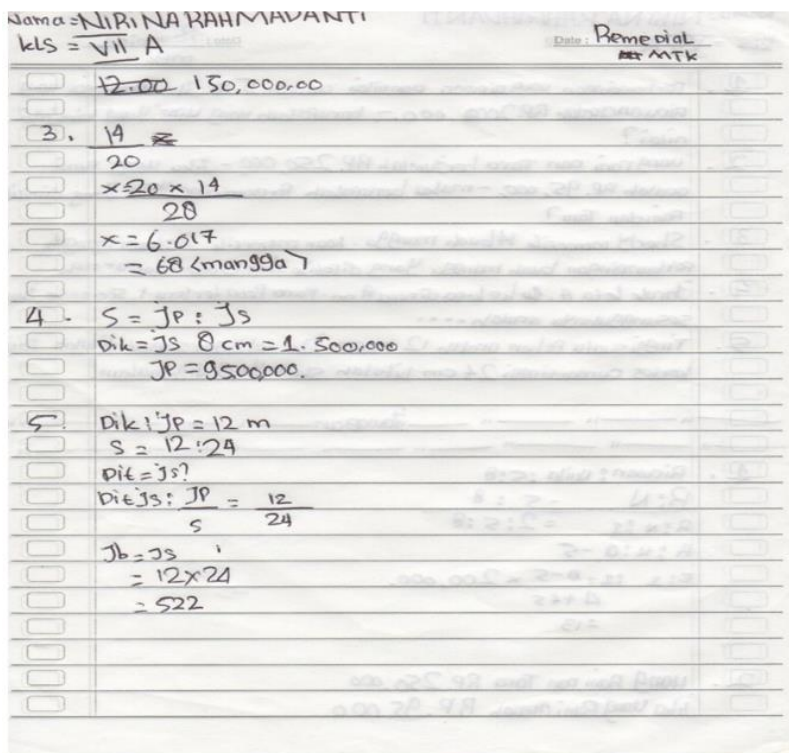 Nama = NIRINA RAHMADANTI
kls = VII A
Date: Remedial
MTK
12.00 150,000,00
3. 14
20
x=20 x 14
20
x = 6.017
= 68 <mangga>
4. S = JP : JS
Dik = JS 8 cm = 1.500,000
JP = 9500,000.
5. Dik : JP = 12 m
S = 12:24
Dit = JS?
Dit JS : JP = 12
S 24
Jb = JS
= 12x24
= 522